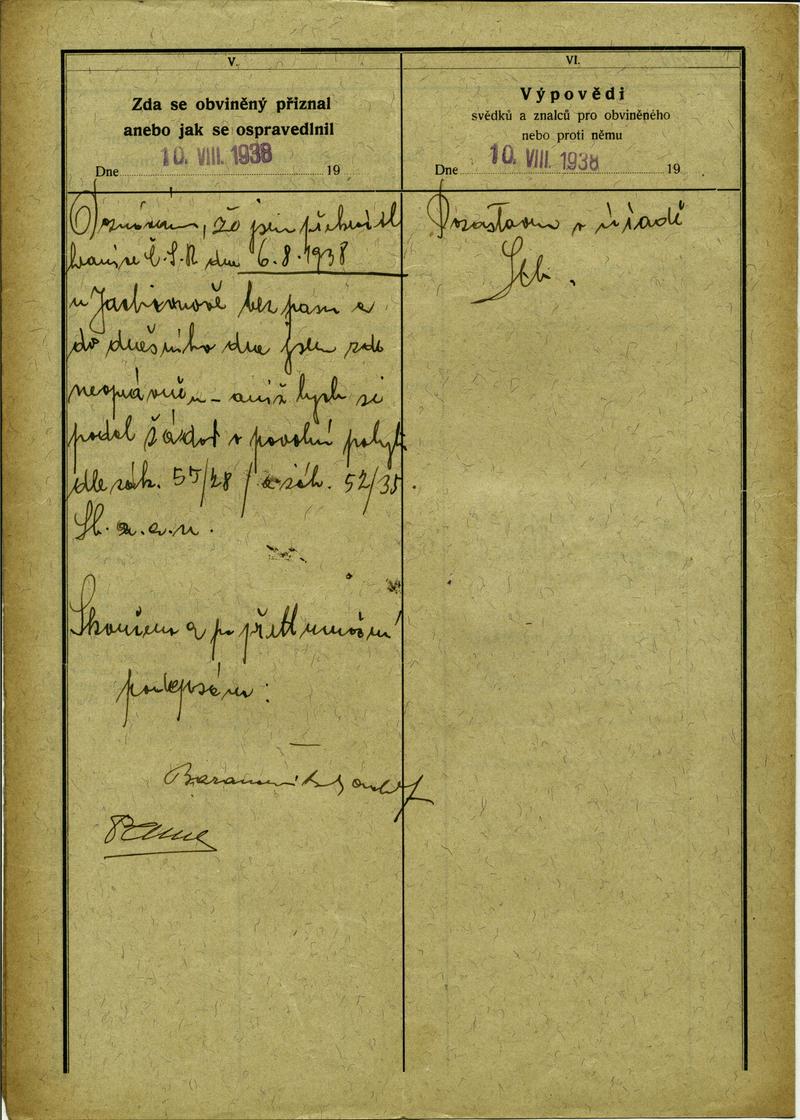 V.
Zda se obviněný přiznal
anebo jak se ospravedlnil
10. VIII. 1938
Dne 19
že jsem překročil
hranice Č.S.R dne 6.8.1938
u bez pasu a
do dnešního dne jsem zde
neoprávněn – aniž bych si
podal žádost o povolní pobytu
dle zák. 55/28 / a zák. 52/35.
Sb. z. a. n.
Skončeno a po přetlumočení
podepsáno:
VI.
Výpovědi
svědků a znalců pro obviněného
nebo proti němu
10. VIII. 1938
Dne 19
v úřadě